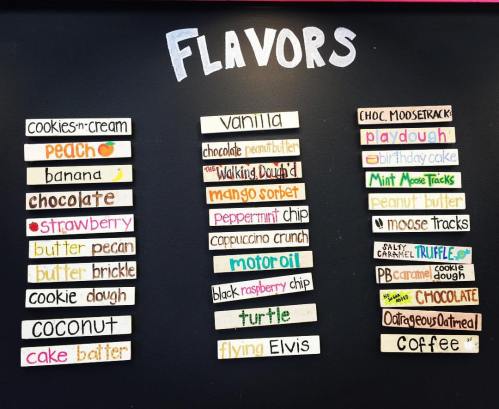 FLAVORS
cookies-n-cream
peach
banana
chocolate
strawberry
butter pecan
butter brickle
cookie dough
coconut
cake batter
vanilla
chocolate peanutbutter
The Walking Dough'd
mango sorbet
peppermint chip
cappuccino crunch
motor oil
black raspberry chip
turtle
flying Elvis
CHOC. MOOSETRACK
playdough
birthday cake
Mint Moose Tracks
peanut butter
moose tracks
SALTY CARAMEL TRUFFLE
PB caramel cookie dough
CHOCOLATE
Outrageous Oatmeal
coffee